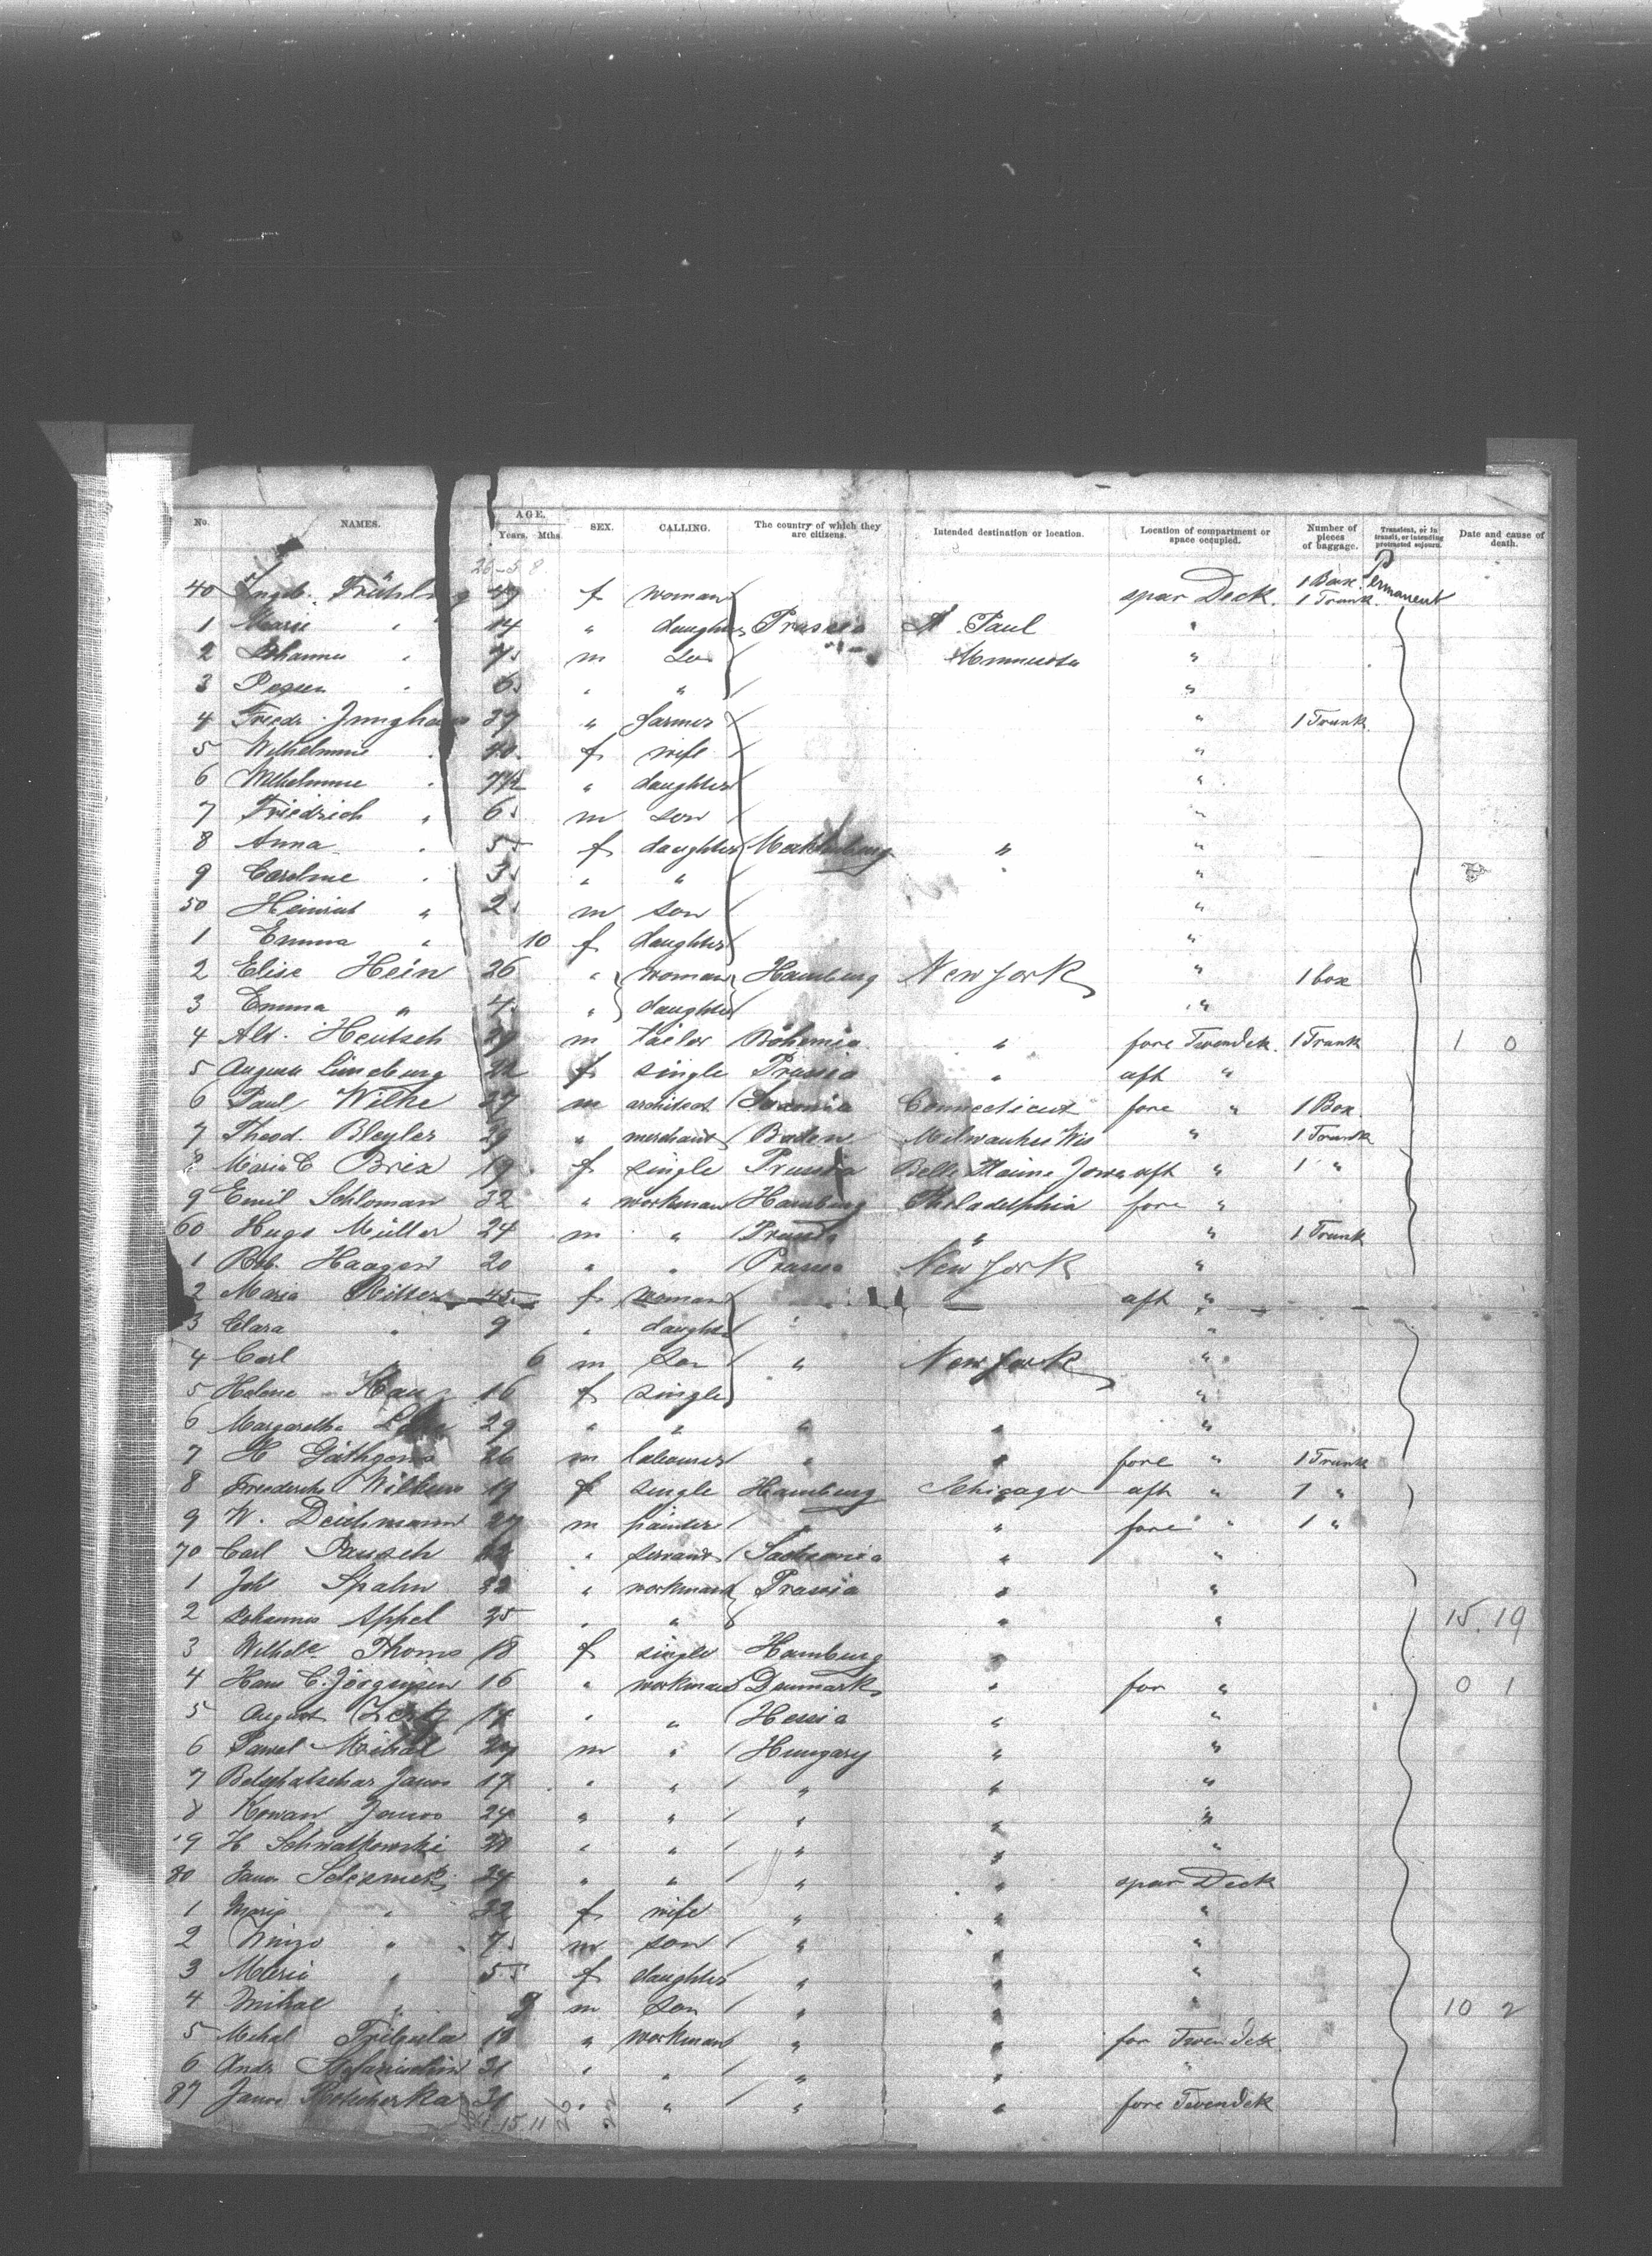 No. NAMES. AGE. Years. Mths. SEX. CALLING. The country of which they are citizens. Intended destination or location. Location of compartment or space occupied. Number of pieces of baggage. Transient, or in transit, or intending protracted sojourn. Date and cause of death.
40 f woman spar Deck. 1 Box 1 Trunk. Permanent
1 Marie " 14 " daughter Prussia St. Paul "
2 Johannes " 7 m so Minnesota "
3 " 6 " " "
4 Friedr. Junghans 39 " farmer " 1 Trunk.
5 Wilhelmine " 40 f wife "
6 Wilhelmine " 7 1/2 " daughter "
7 Friedrich " 6 m son "
8 Anna " 5 f daughter Mecklenburg " "
9 Caroline " 3 " " "
50 Heinrich " 2 m son "
1 Emma " 10 f daughter "
2 Elise Hein 26 " woman Hamburg New York " 1 box
3 Emma " 4 " daughter "
4 Alb. Hentsch 29 m tailor Bohemia " fore Twendek. 1 Trunk 1 0
5 August Luneburg 22 f single Prussia " aft "
6 Paul Wilke 27 m architect Saxonia Connecticut fore " 1 Box.
7 Theod. Bleyler 29 " merchant Baden Milwaukee Wis " 1 Trunk
8 Maria C Brix 19 f single Prussia Belle Plaine Jowa aft " 1 "
9 Emil Schloman 32 " workman Hamburg Philadelphia fore "
60 Hugo Müller 24 m " Prussia " " 1 Trunk
1 Rob. Haagen 20 " " Prussia New York "
2 Maria Ritter 45 f woman aft "
3 Clara " 9 " daughter " "
4 Carl 6 m son " New York "
5 Helene 16 f single "
6 Margaretha 29 " " " " "
7 H Gäthgens 26 m labourer " " fore " 1 Trunk
8 Friederike Wilkens 19 f single Hamburg Chicago aft " 1 "
9 W. Deichmann 27 m painter " " fore " 1 "
70 Carl Pausch " servant Sachsonia " "
1 Joh Spahn 22 " workman Prussia " "
2 Johannes Appel 25 " " " " 15.19
3 Wilhele Thoms 18 f single Hamburg "
4 Hans C. Jörgensen 16 " workman Denmark " for " 0 1
5 August " " Hessia " "
6 Pawel Mihal 27 m " Hungary " "
7 Janos 17 " " " " "
8 Kowan Janos 24 " " " " "
9 H Schwatkowski " " " " "
80 Janos " " " " spar Deck
1 Marie " 32 f wife " " "
2 " 7 m son " " "
3 Marie " 5 f daughter " " "
4 Mihal " m son " " " 10 2
5 Mihal Tribula 18 " workman " " for Twendek
6 Andr. 31 " " " " "
87 Janos 31 " " " " fore Twendek
15.11